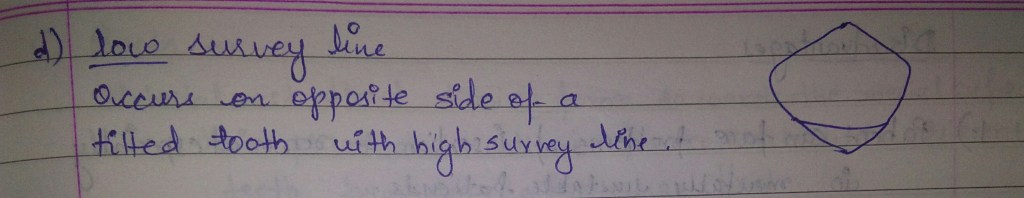 d) low survey line
Occurs on opposite side of a
tilted tooth with high survey line.